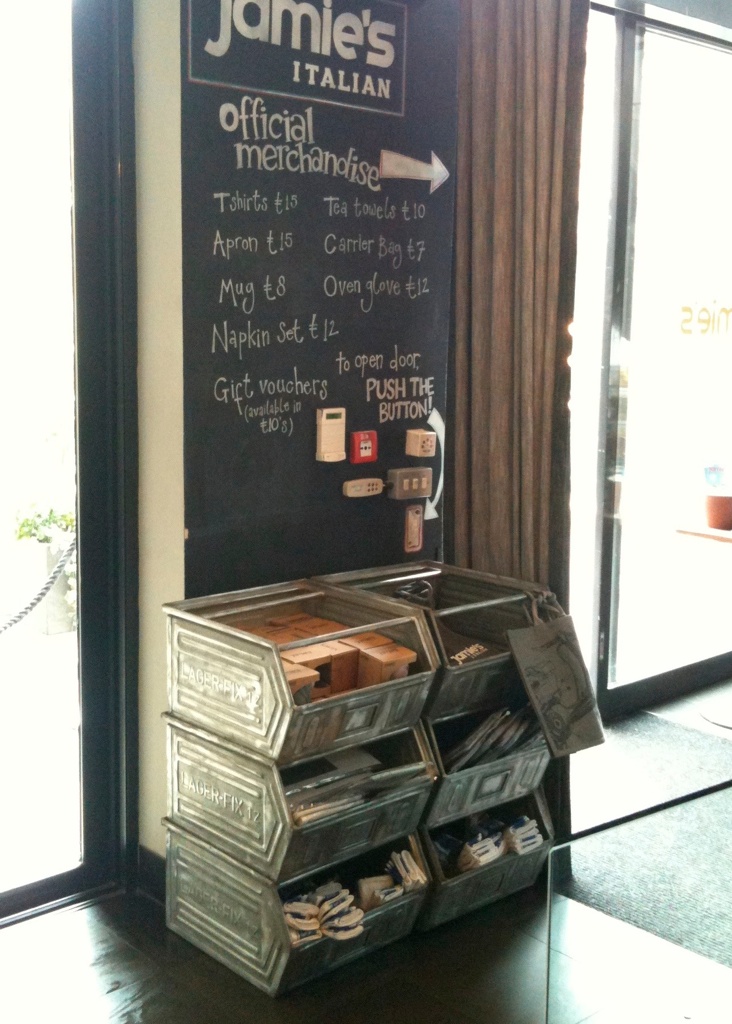 Jamie's
ITALIAN
Official
merchandise
Tshirts £15
Tea towels £10
Apron £15
Carrier Bag £7
Mug £8
Oven glove £12
Napkin Set £12
Gift vouchers
(available in
£10's)
to open door,
PUSH THE
BUTTON!
jamie's
LAGER-FIX 12
LAGER-FIX 12
LAGER-FIX 12